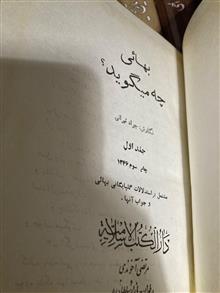 بهائی
چه میگوید؟
نگارش: جواد تهرانی
جلد اول
چاپ سوم ۱۳۴۶
مشتمل بر استدلالات گلپایگانی بهائی
و جواب آنها.
دار الکتب الاسلامیة
مرتضی آخوندی